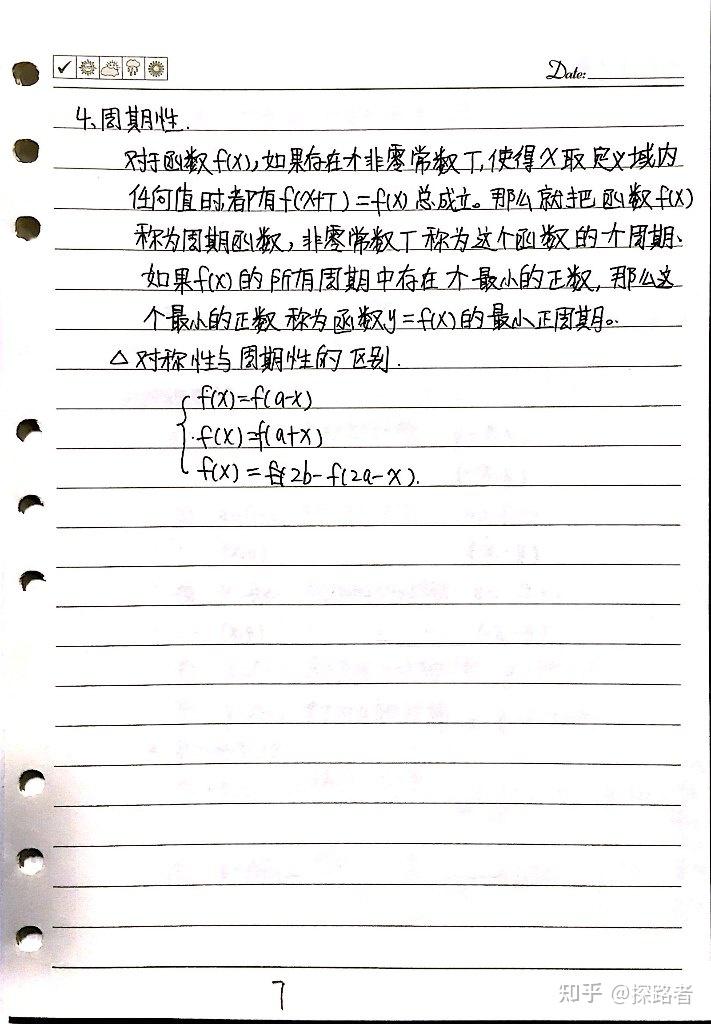 Date:
4、周期性.
对于函数f(x),如果存在个非零常数T,使得x取定义域内
任何值时都有f(x+T)=f(x)总成立。那么就把函数f(x)
称为周期函数,非零常数T称为这个函数的个周期、
如果f(x)的所有周期中存在个最小的正数,那么这
个最小的正数称为函数y=f(x)的最小正周期。
△对称性与周期性的区别.
f(x)=f(a-x)
f(x)=f(a+x)
f(x)=2b-f(2a-x).
7
知乎 @探路者